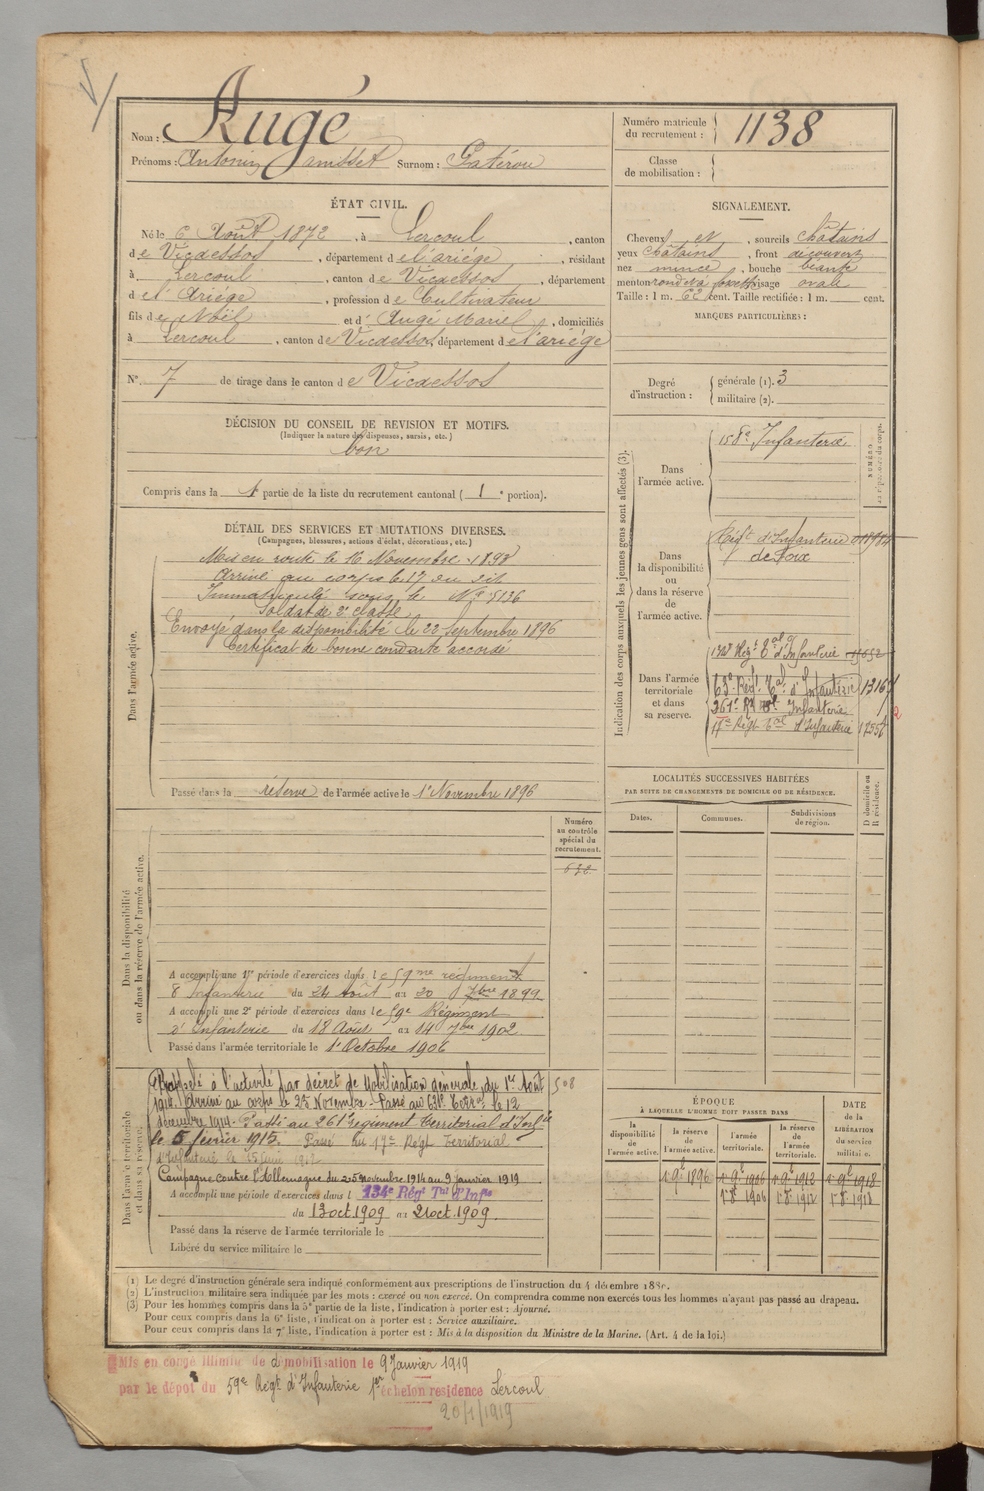 Nom : Augé
Prénoms : Antonin Surnom : Gatérou
Numéro matricule du recrutement : 1138
Classe de mobilisation :
ÉTAT CIVIL.
Né le 6 Août 1872, à Lercoul, canton
de Vicdessos, département de l'ariége, résidant
à Lercoul, canton de Vicdessos, département
de l'Ariége, profession de Cultivateur
fils de Noël et d' Augé Marie, domiciliés
à Lercoul, canton de Vicdessos, département de l'ariége
N° 7 de tirage dans le canton de Vicdessos
SIGNALEMENT.
Cheveux et, sourcils châtains
yeux châtains, front découvert
nez mince, bouche béante
menton rond et à fossette visage ovale
Taille : 1 m. 62 cent. Taille rectifiée : 1 m. cent.
MARQUES PARTICULIÈRES :
Degré d'instruction : générale (1). 3
militaire (2).
DÉCISION DU CONSEIL DE REVISION ET MOTIFS.
(Indiquer la nature des dispenses, sursis, etc.)
bon
Compris dans la 1 partie de la liste du recrutement cantonal ( 1 e portion).
DÉTAIL DES SERVICES ET MUTATIONS DIVERSES.
(Campagnes, blessures, actions d'éclat, décorations, etc.)
Dans l'armée active.
Mis en route le 16 Novembre 1893
Arrivé au corps le 17 du dit
Immatriculé sous le N° 5136
Soldat de 2e classe
Envoyé dans la disponibilité le 22 Septembre 1896
Certificat de bonne conduite accordé
Passé dans la réserve de l'armée active le 1er Novembre 1896
Indication des corps auxquels les jeunes gens sont affectés (3).
Dans l'armée active.
158e Infanterie
Dans la disponibilité ou dans la réserve de l'armée active.
Régt d'Infanterie
de Foix
Dans l'armée territoriale et dans sa réserve.
134e Régt tal d'Infanterie
63e Régt tal d'Infanterie
261e Rt tal Infanterie
17e Régt tal d'Infanterie
LOCALITÉS SUCCESSIVES HABITÉES
PAR SUITE DE CHANGEMENTS DE DOMICILE OU DE RÉSIDENCE.
D domicile ou R résidence.
Dates. Communes. Subdivisions de région.
Numéro au contrôle spécial du recrutement.
Dans la disponibilité ou dans la réserve de l'armée active.
A accompli une 1re période d'exercices dans le 59me régiment
d'Infanterie du 24 Août au 20 7bre 1899
A accompli une 2e période d'exercices dans le 59e Régiment
d'Infanterie du 18 Août au 14 7bre 1902
Passé dans l'armée territoriale le 1er Octobre 1906
Dans l'armée territoriale et dans sa réserve.
508
Rappelé à l'activité par décret de Mobilisation générale du 1er Août
1914. Arrivé au corps le 25 Novembre. Passé au 63e Terral le 12
décembre 1914. Passé au 261e régiment Territorial d'Infie
le 5 février 1915. Passé au 17e Régt Territorial
d'Infanterie le
Campagne contre l'Allemagne du 25 novembre 1914 au 9 janvier 1919
A accompli une période d'exercices dans l 134e Régt Tal d'Infie
du 13 oct. 1909 au 21 oct. 1909.
Passé dans la réserve de l'armée territoriale le
Libéré du service militaire le
ÉPOQUE
À LAQUELLE L'HOMME DOIT PASSER DANS
la disponibilité de l'armée active. la réserve de l'armée active. l'armée territoriale. la réserve de l'armée territoriale.
DATE de la LIBÉRATION du service militaire.
1 9e 1896 1 9e 1906 1 9e 1912 1 9e 1918
1 8 1906 1 8 1912 1 8 1918
(1) Le degré d'instruction générale sera indiqué conformément aux prescriptions de l'instruction du 4 décembre 1889.
(2) L'instruction militaire sera indiquée par les mots : exercé ou non exercé. On comprendra comme non exercés tous les hommes n'ayant pas passé au drapeau.
(3) Pour les hommes compris dans la 5e partie de la liste, l'indication à porter est : Ajourné.
Pour ceux compris dans la 6e liste, l'indication à porter est : Service auxiliaire.
Pour ceux compris dans la 7e liste, l'indication à porter est : Mis à la disposition du Ministre de la Marine. (Art. 4 de la loi.)
Mis en congé illimité de démobilisation le 9 Janvier 1919
par le dépôt du 59e Régt d'Infanterie 1er échelon residence Lercoul
20/1/1919